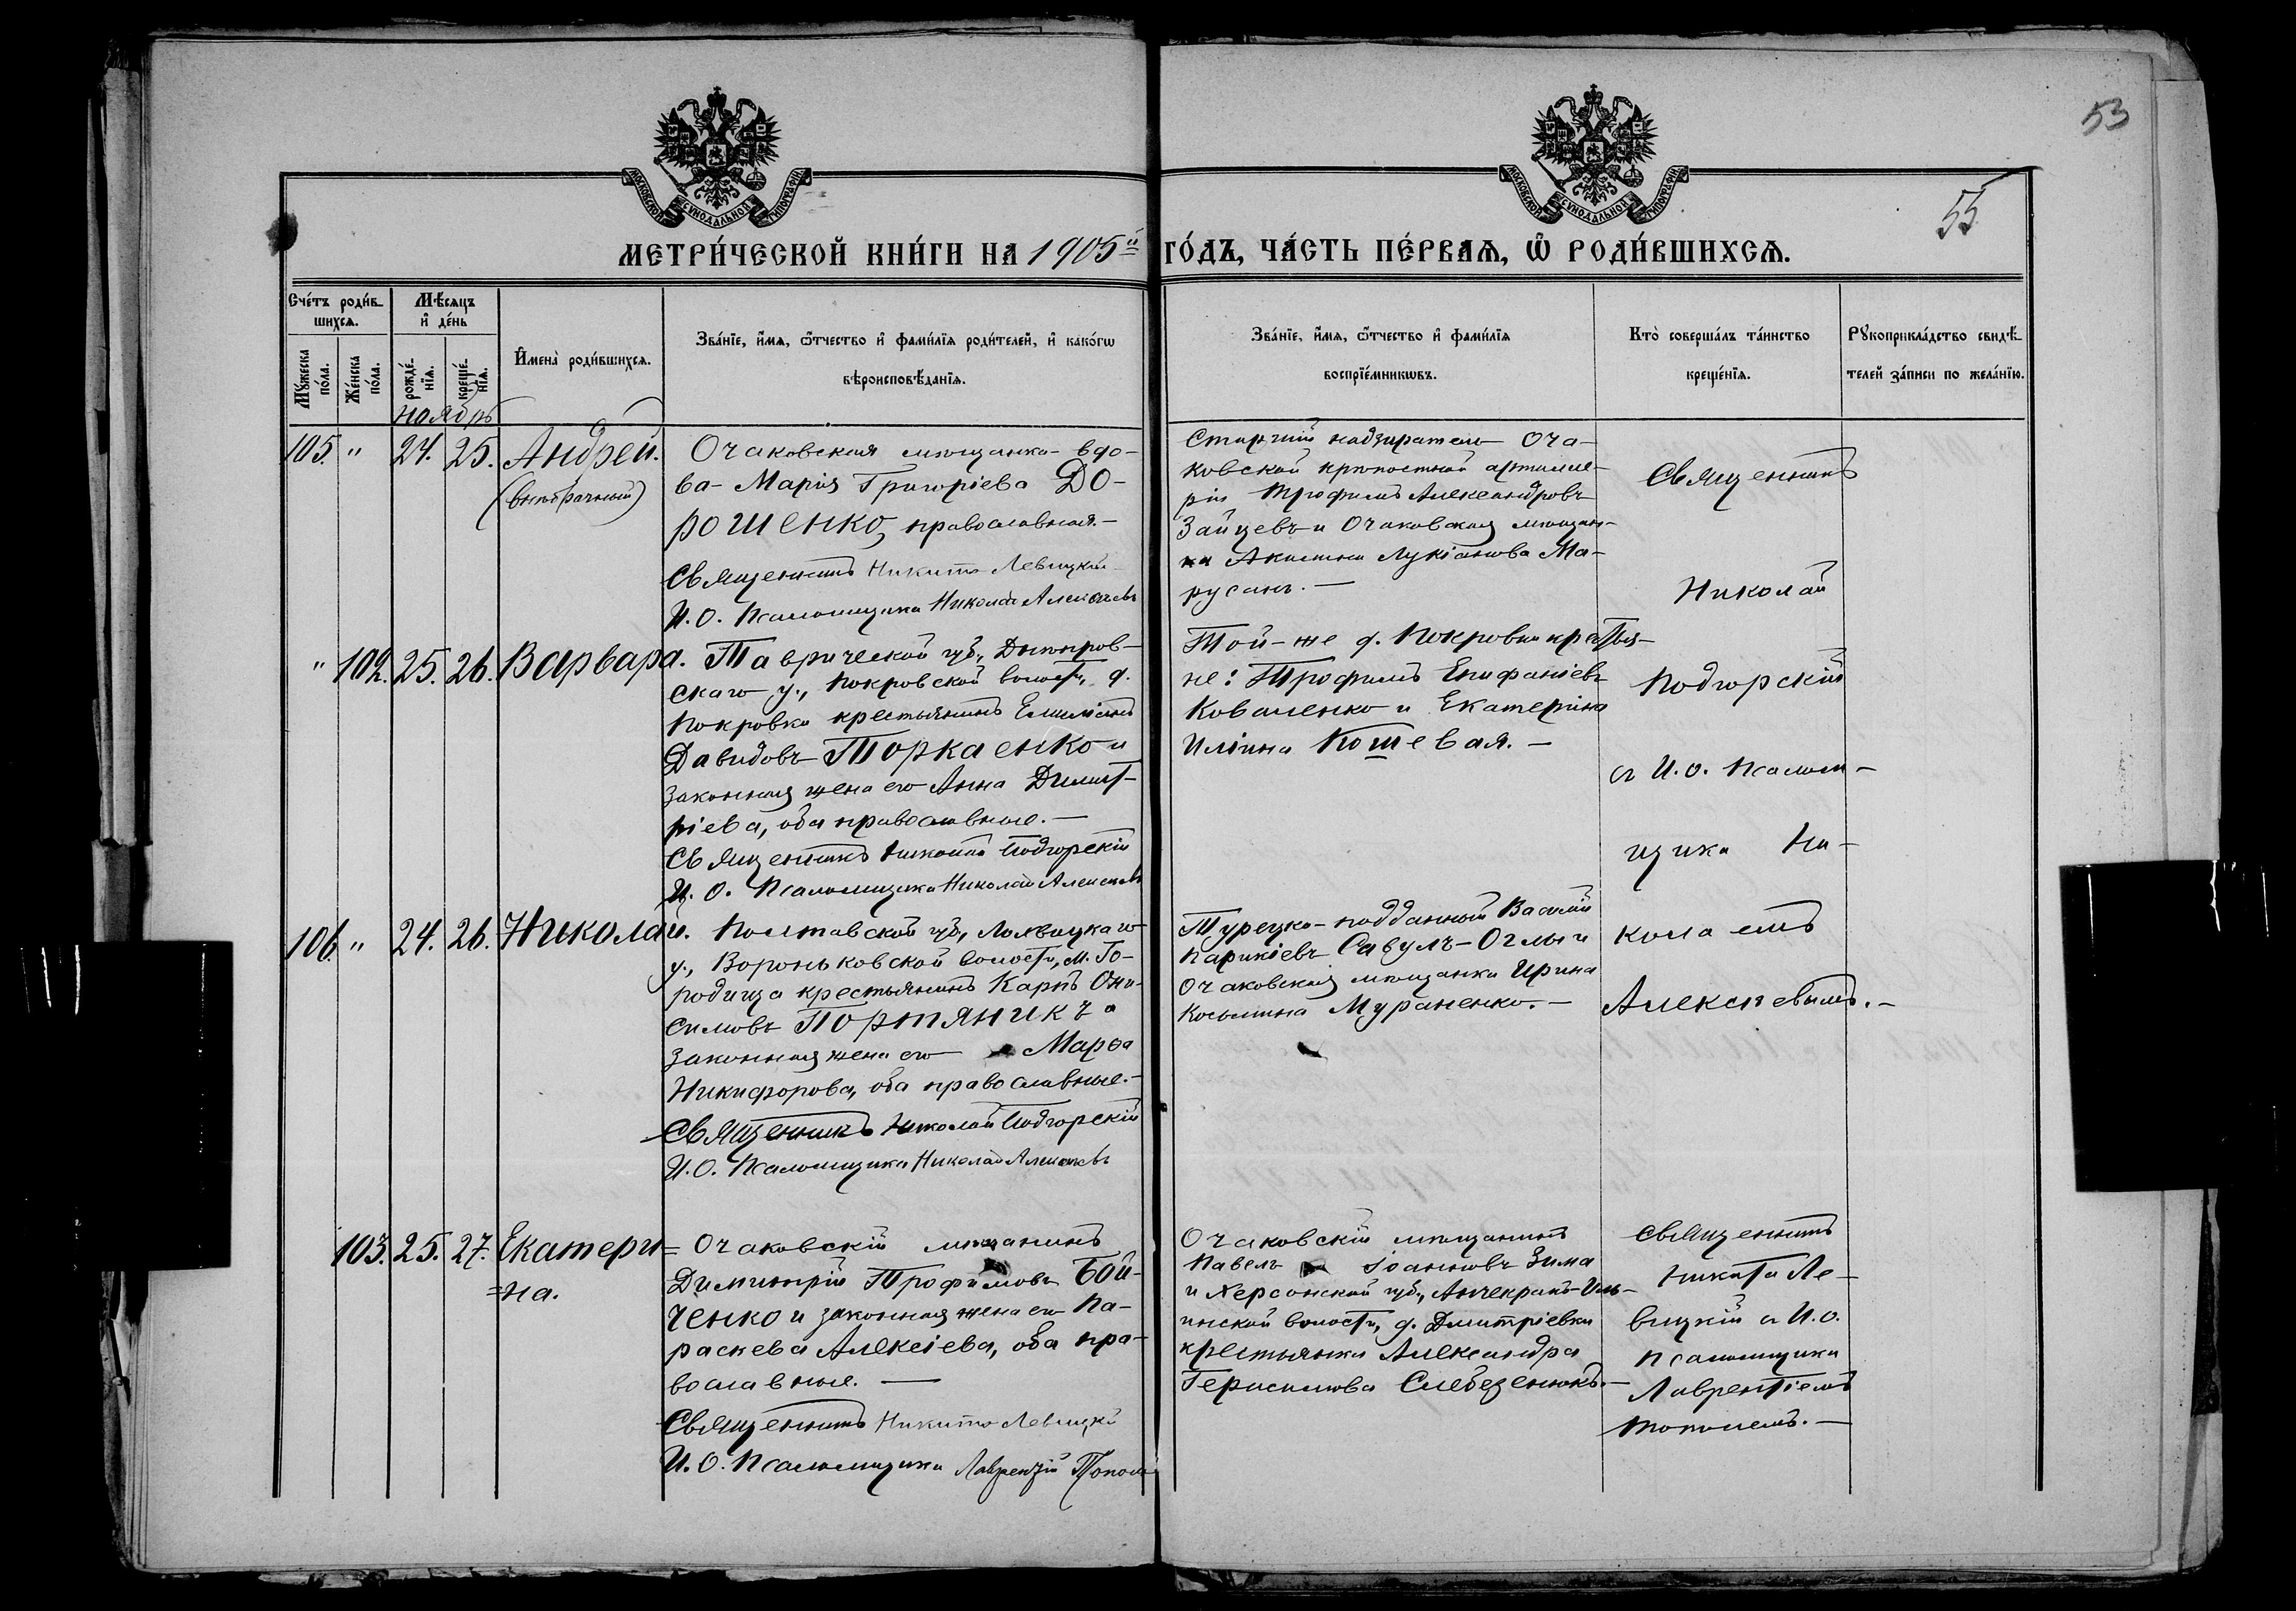 53
55
МОСКОВСКОЙ СѴНОДАЛЬНОЙ ТИПОГРАФІИ
МОСКОВСКОЙ СѴНОДАЛЬНОЙ ТИПОГРАФІИ
МЕТРИ́ЧЕСКОЙ КНИ́ГИ НА 1905й ГО́ДЪ, ЧА́СТЬ ПЕ́РВАѦ, Ѽ РОДИ́ВШИХСѦ.
Сче́тъ роди́в-
шихсѧ.
Мꙋ́жеска по́ла.
Же́нска по́ла.
Мѣ́сѧцъ
и҆ де́нь
рожде́-
нїѧ.
креще́-
нїѧ.
И҆мена̀ роди́вшихсѧ.
Зва́нїе, и҆́мѧ, ѻ҆́тчество и҆ фами́лїѧ роди́телей, и҆ како́гѡ
вѣроисповѣ́данїѧ.
Зва́нїе, и҆́мѧ, ѻ҆́тчество и҆ фами́лїѧ
воспрїе́мникѡвъ.
Кто̀ соверша́лъ та́инство
креще́нїѧ.
Рꙋкоприкла́дство свидѣ́-
телей за́писи по жела́нїю.
ноябрь
105. " 24. 25. Андрей.
(внѣбрачный)
Очаковская мѣщанка - вдо-
ва - Марія Григоріева До-
рошенко, православная. -
Священникъ Никита Левицкій
И. О. Псаломщика Николай Алексѣевъ
Старшій надзиратель Оча-
ковской крѣпостной артилле-
ріи Трофимъ Александровъ
Зайцевъ и Очаковская мѣщан-
ка Акилина Лукіанова Ма-
русанъ. -
Священникъ
Николай
Подгорскій
съ И. О. Псалом-
щика Ни-
колаемъ
Алексѣевымъ. -
" 102. 25. 26. Варвара.
Таврической губ., Днѣпров-
скаго у., Покровской волости, д.
Покровки крестьянинъ Емиліанъ
Давидовъ Торкаенко и
законная жена его Анна Димит-
ріева, оба православные. -
Священникъ Николай Подгорскій
И. О. Псаломщика Николай Алексѣевъ
Той-же д. Покровки крестья-
не: Трофимъ Епифаніевъ
Коваленко и Екатерина
Иліина Кошевая. -
106. " 24. 26. Николай.
Полтавской губ., Лохвицкаго
у., Вороньковской волости, м. Го-
родища крестьянинъ Карпъ Они-
симовъ Портяникъ и
законная жена его Марѳа
Никифорова, оба православные. -
Священникъ Николай Подгорскій
И. О. Псаломщика Николай Алексѣевъ
Турецко-подданный Василій
Кирикіевъ Савулъ-Оглы и
Очаковская мѣщанка Ирина
Косьмина Мураненко. -
103. 25. 27. Екатери=
=на.
Очаковскій мѣщанинъ
Димитрій Трофимовъ Бой-
ченко и законная жена его Па-
раскева Алексіева, оба пра-
вославные. -
Священникъ Никита Левицкій
И. О. Псаломщика Лаврентій Тополь
Очаковскій мѣщанинъ
Павелъ Іоанновъ Зима
и Херсонской губ., Анчекракъ-Иль-
инской волости, д. Дмитріевки
крестьянка Александра
Герасимова Слебезенюкъ. -
Священникъ
Никита Ле-
вицкій съ И. О.
Псаломщика
Лаврентіемъ
Тополемъ. -